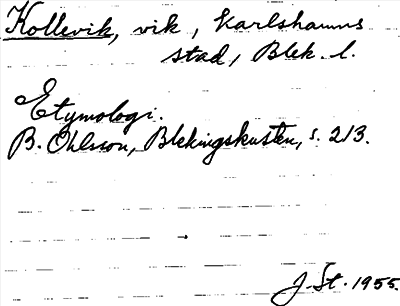 Kollevik, vik, Karlshamns
stad, Blek. l.
Etymologi.
B. Ohlsson, Blekingskusten, s. 213.
J. St. 1955.